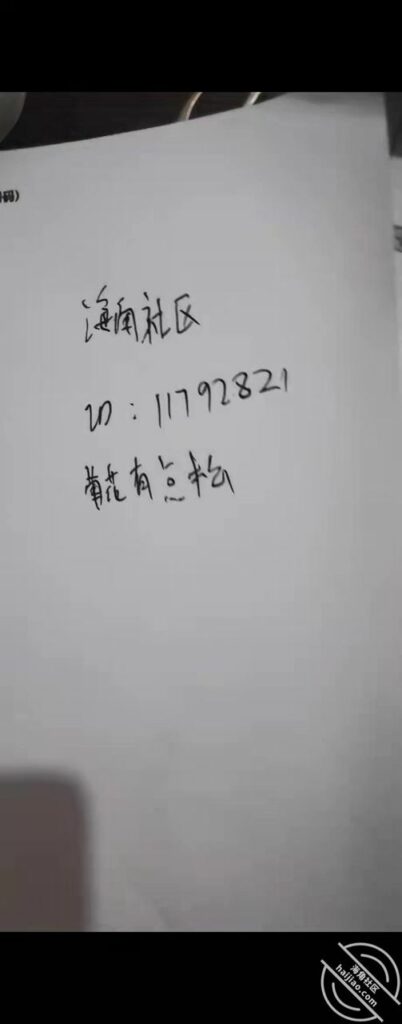 码)
海角社区
ID:11792821
菊花有点松
海角社区
haijiao.com